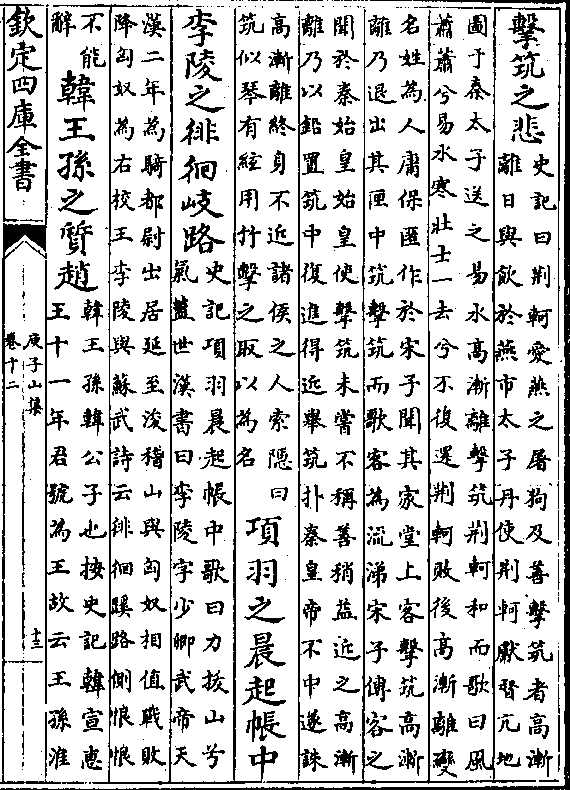 擊筑之悲
史記曰荆軻愛燕之屠狗及善擊筑者高漸
離日與飲於燕市太子丹使荆軻獻督亢地
圖于秦太子送之易水高漸離擊筑荆軻和而歌曰風
蕭蕭兮易水寒壯士一去兮不復還荆軻敗後高漸離變
名姓為人庸保匿作於宋子聞其家堂上客擊筑高漸
離乃退出其匣中筑擊筑而歌客為流涕宋子傳客之
聞於秦始皇始皇使擊筑未嘗不稱善稍益近之高漸
離乃以鉛置筑中復進得近舉筑扑秦皇帝不中遂誅
高漸離終身不近諸侯之人索隱曰
筑似琴有絃用竹擊之取以為名
項羽之晨起帳中
李陵之徘徊岐路
史記項羽晨起帳中歌曰力拔山兮
氣蓋世漢書曰李陵字少卿武帝天
漢二年為騎都尉出居延至浚稽山與匈奴相值戰敗
降匈奴為右校王李陵與蘇武詩云徘徊蹊路側恨恨
不能
辭
韓王孫之質趙
韓王孫韓公子也按史記韓宣惠
王十一年君號為王故云王孫淮
欽定四庫全書
庾子山集
卷十二
十三